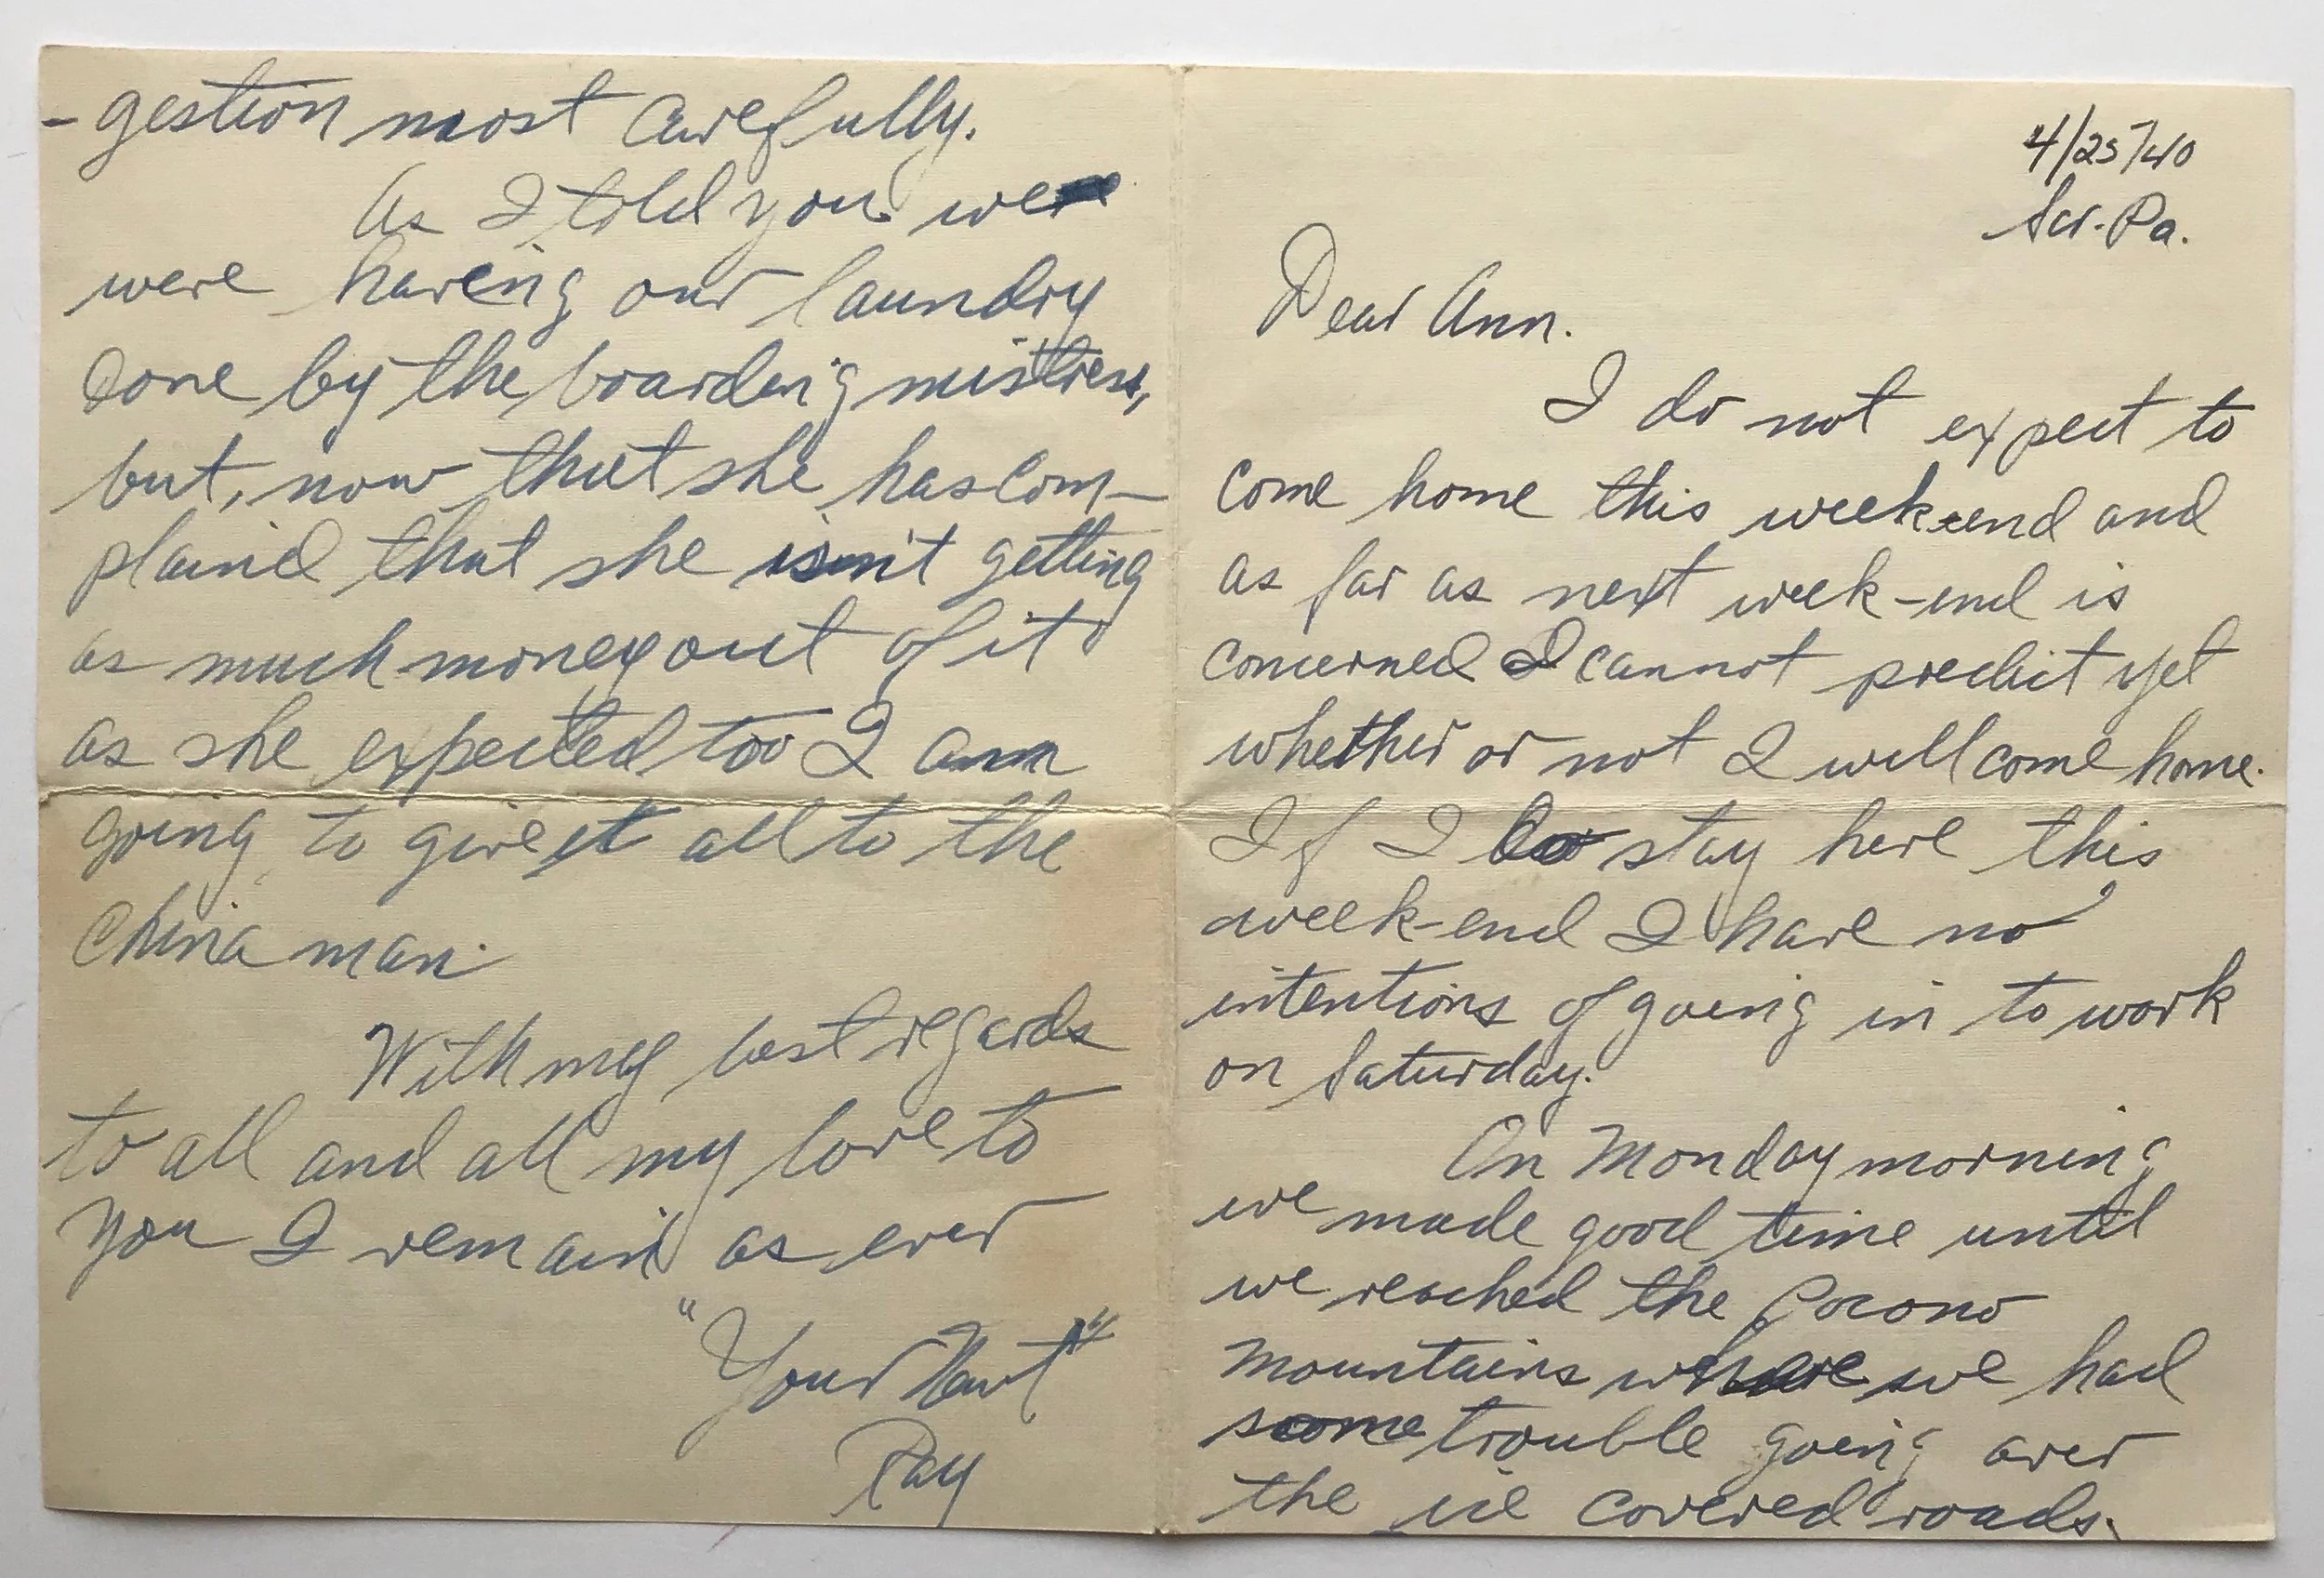 4/25/40
Scr. Pa.
Dear Ann.
I do not expect to
come home this week-end and
as far as next week-end is
concerned I cannot predict yet
whether or not I will come home.
If I do stay here this
week-end I have no
intentions of going in to work
on Saturday.
On Monday morning
we made good time until
we reached the Pocono
Mountains where we had
some trouble going over
the ice covered roads.
-gestion most carefully.
As I told you we
were having our laundry
done by the boarding mistress,
but, now that she has com-
plained that she isn't getting
as much money out of it
as she expected too I am
going to give it all to the
China man.
With my best regards
to all and all my love to
you I remain as ever
"Your
Ray